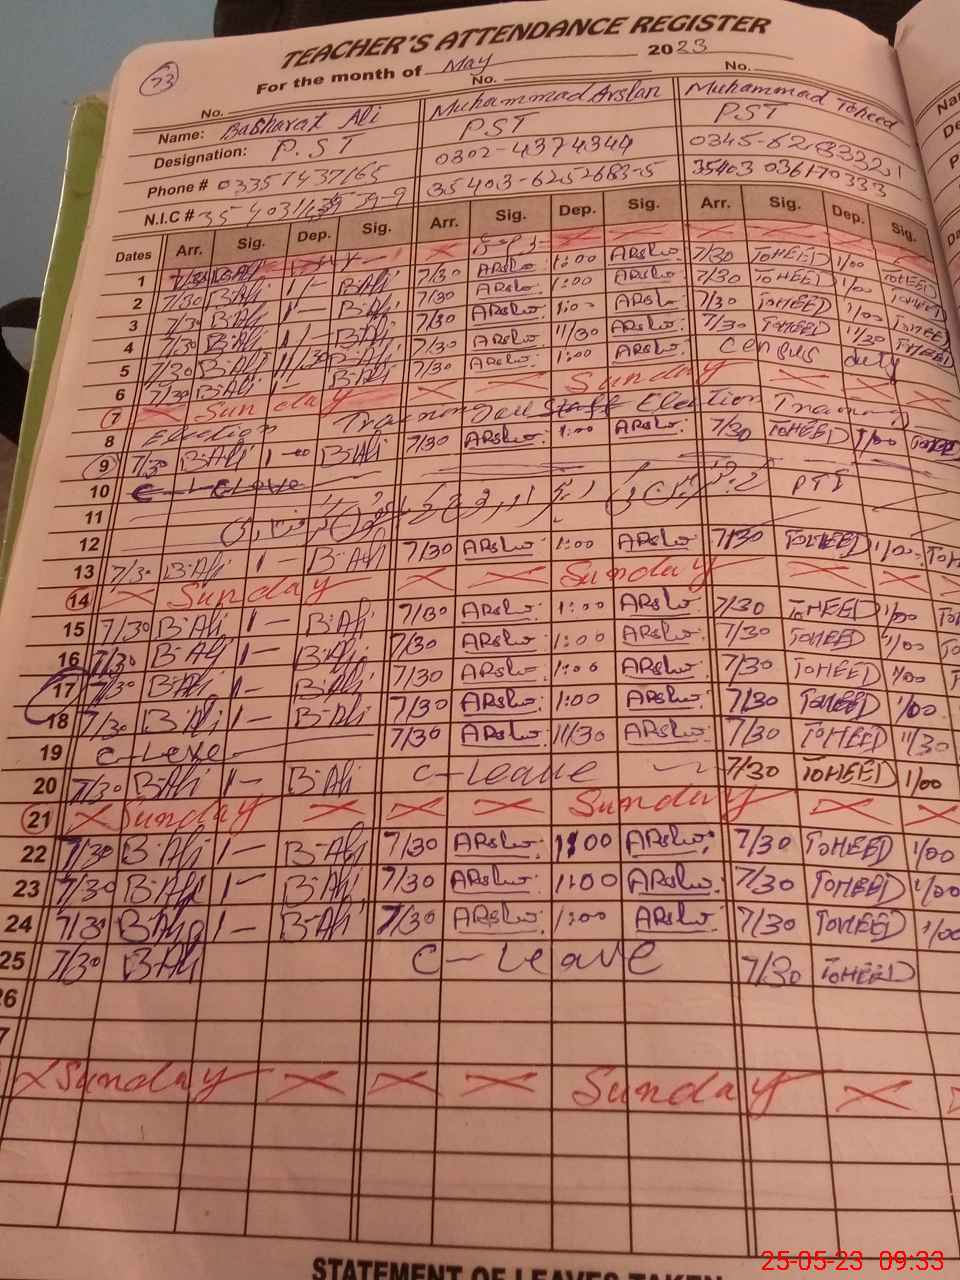 73
TEACHER'S ATTENDANCE REGISTER
For the month of May 2023
No. No. No.
Name: Basharat Ali Muhammad Arslan Muhammad Toheed
Designation: P.ST PST PST
Phone # 03351437165 0302-4374344
N.I.C # 35403-6252683-5 35403 036170333
Dates Arr. Sig. Dep. Sig. Arr. Sig. Dep. Sig. Arr. Sig. Dep. Sig.
1
2 7/30 B-Ali 1- B-Ali 7/30 ARslw 1:00 ARslw 7/30 TOHEED 1/00 TOHEED
3 7/30 B-Ali 1- B-Ali 7/30 ARslw 1:00 ARslw 7/30 TOHEED 1/00 TOHEED
4 7/30 B-Ali 1- B-Ali 7/30 ARslw 1:00 ARslw 7/30 TOHEED 1/00 TOHEED
5 7/30 B-Ali 11/30 B-Ali 7/30 ARslw 11/30 ARslw 7/30 TOHEED 11/30 TOHEED
6 7/30 B-Ali 1- B-Ali 7/30 ARslw 1:00 ARslw Census duty
7 Sunday Sunday
8 Election Training Staff Election Training
9 7/30 B-Ali 1-00 B-Ali 7/30 ARslw 1:00 ARslw 7/30 TOHEED 1/00 TOHEED
10
11
12
13 7/30 B-Ali 1- B-Ali 7/30 ARslw 1:00 ARslw 7/30 TOHEED 1/00
14 Sunday Sunday
15 7/30 B-Ali 1- B-Ali 7/30 ARslw 1:00 ARslw 7/30 TOHEED 1/00
16 7/30 B-Ali 1- B-Ali 7/30 ARslw 1:00 ARslw 7/30 TOHEED 1/00
17 7/30 B-Ali 1- B-Ali 7/30 ARslw 1:00 ARslw 7/30 TOHEED 1/00
18 7/30 B-Ali 1- B-Ali 7/30 ARslw 1:00 ARslw 7/30 TOHEED 1/00
19 C-Leve 7/30 ARslw 11/30 ARslw 7/30 TOHEED 11/30
20 7/30 B-Ali 1- B-Ali C-Leave 7/30 TOHEED 1/00
21 Sunday Sunday
22 7/30 B-Ali 1- B-Ali 7/30 ARslw 1:00 ARslw 7/30 TOHEED 1/00
23 7/30 B-Ali 1- B-Ali 7/30 ARslw 1:00 ARslw 7/30 TOHEED 1/00
24 7/30 B-Ali 1- B-Ali 7/30 ARslw 1:00 ARslw 7/30 TOHEED 1/00
25 7/30 B-Ali C-Leave 7/30 TOHEED
26
7
Sunday Sunday
STATEMENT OF LEAVES TAKEN
25-05-23 09:33